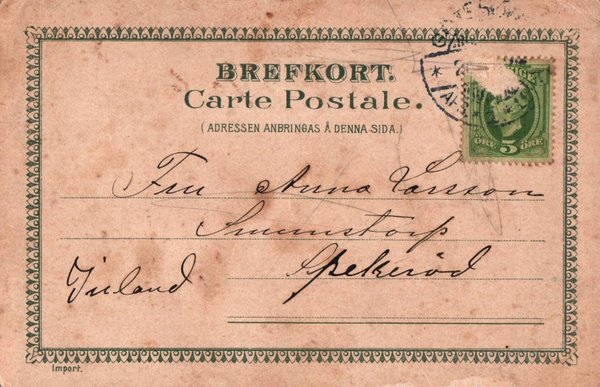 BREFKORT.
Carte Postale.
(ADRESSEN ANBRINGAS Å DENNA SIDA.)
5
ÖRE ÖRE
Fru Anna Larsson
Spekeröd
Jnland
Import.